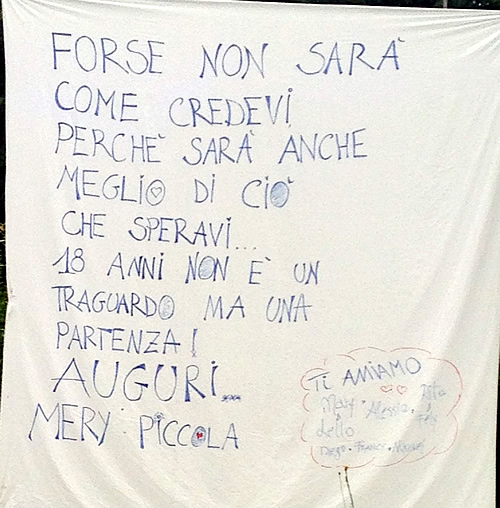 FORSE NON SARÀ
COME CREDEVI
PERCHÈ SARÀ ANCHE
MEGLIO DI CIÒ
CHE SPERAVI...
18 ANNI NON È UN
TRAGUARDO MA UNA
PARTENZA!
AUGURI...
MERY PICCOLA
TI AMIAMO
Mery • Alessia